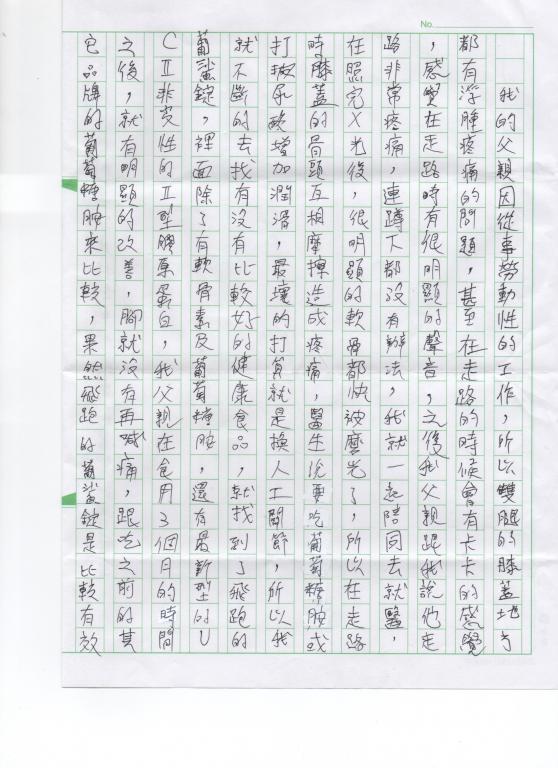 No.
我的父親因從事勞動性的工作，所以雙腿的膝蓋地方
都有浮腫疼痛的問題，甚至在走路的時候會有卡卡的感覺
，感覺在走路時有很明顯的聲音，之後我父親跟我說他走
路非常疼痛，連蹲下都沒有辦法，我就一起陪同去就醫，
在照完X光後，很明顯的軟骨都快被磨光了，所以在走路
時膝蓋的骨頭互相摩擦造成疼痛，醫生說要吃葡萄糖胺或
打玻尿酸增加潤滑，最壞的打算就是換人工關節，所以我
就不斷的去找有沒有比較好的健康食品，就找到了飛跑的
葡鯊錠，裡面除了有軟骨素及葡萄糖胺，還有最新型的U
CII非变性的II型膠原蛋白，我父親在食用3個月的時間
之後，就有明顯的改善，腳就沒有再喊痛，跟吃之前的其
它品牌的葡萄糖胺來比較，果然飛跑的葡鯊錠是比較有效